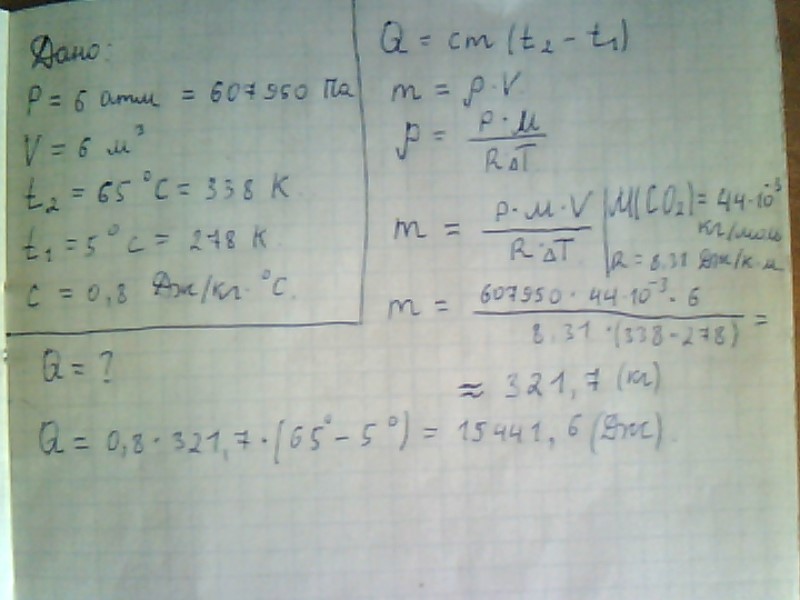 Дано:
P = 6 атм = 607950 Па
V = 6 м³
t₂ = 65 °C = 338 К
t₁ = 5 °C = 278 К
C = 0,8 Дж/кг·°C.
Q = ?
Q = cm (t₂ - t₁)
m = ρ·V
ρ = P·M / RΔT
m = P·M·V / R·ΔT
M(CO₂) = 44·10⁻³
кг/моль
R = 8,31 Дж/К·м
m = 607950·44·10⁻³·6 / 8,31·(338-278) =
≈ 321,7 (кг)
Q = 0,8·321,7·(65° - 5°) = 15441,6 (Дж).